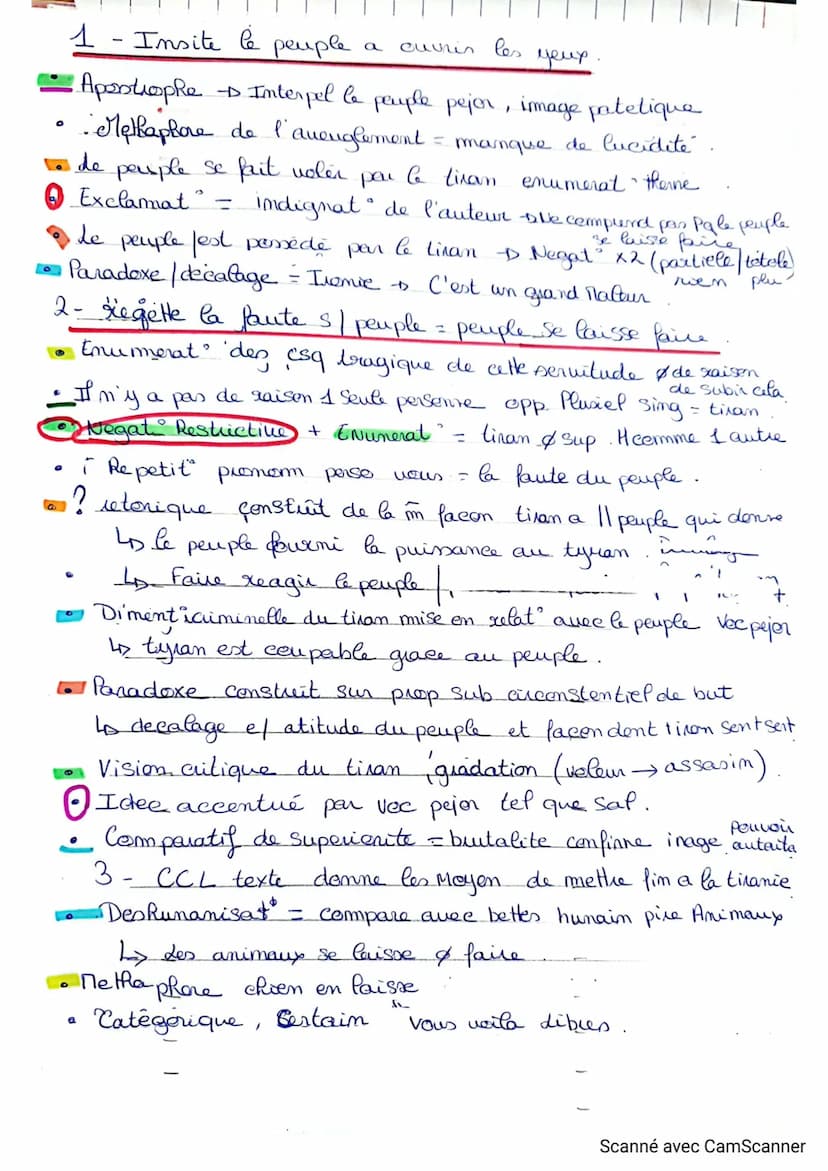 1 - Insite le peuple a ouvrir les yeux.
Apostrophe → Interpel le peuple pejor, image patetique
• Methaphore de l'aveuglement = manque de lucidité.
• Le peuple se fait voler par le tiran enumerat° theme.
Exclamat° = indignat° de l'auteur → Ne comprend pas Pq le peuple
se laisse faire
• Le peuple est possédé par le tiran → Negat° x2 (partiele/totale)
rien plus
• Paradoxe/décalage = Ironie → C'est un grand Malheur
2 - Rejette la faute s/ peuple = peuple se laisse faire.
• Enumerat° des csq tragique de cette servitude ø de raison
de subir cela.
• Il n'y a pas de raison 1 seule personne opp. Pluriel Sing = tiran.
• Negat° Restrictive + Enumerat° = tiran ø sup. H comme 1 autre
• Repetit° pronom perso vous = la faute du peuple.
• ? retorique construit de la m̂ façon tiran a || peuple qui donne
↳ le peuple fourni la puissance au tyran.
• ↳ Faire reagir le peuple
• Diment° criminelle du tiran mise en relat° avec le peuple Voc pejor
↳ tyran est coupable grace au peuple.
• Paradoxe construit sur prop sub circonstentiel de but
↳ decalage e/ atitude du peuple et façon dont tiran s'en sert
• Vision critique du tiran, gradation (voleur → assasin)
• Idee accentué par voc pejor tel que sal.
• Comparatif de superiorite = brutalite confirme image Pouvoir
autorita
3 - CCL texte donne les Moyen de mettre fim a la tiranie
• Deshumanisat° = compare avec bettes humain pire Animaux
↳ des animaux se laisse ø faire
• Metha phore chien en laisse
• Catégorique, Certain "vous voila libres.
Scanné avec CamScanner